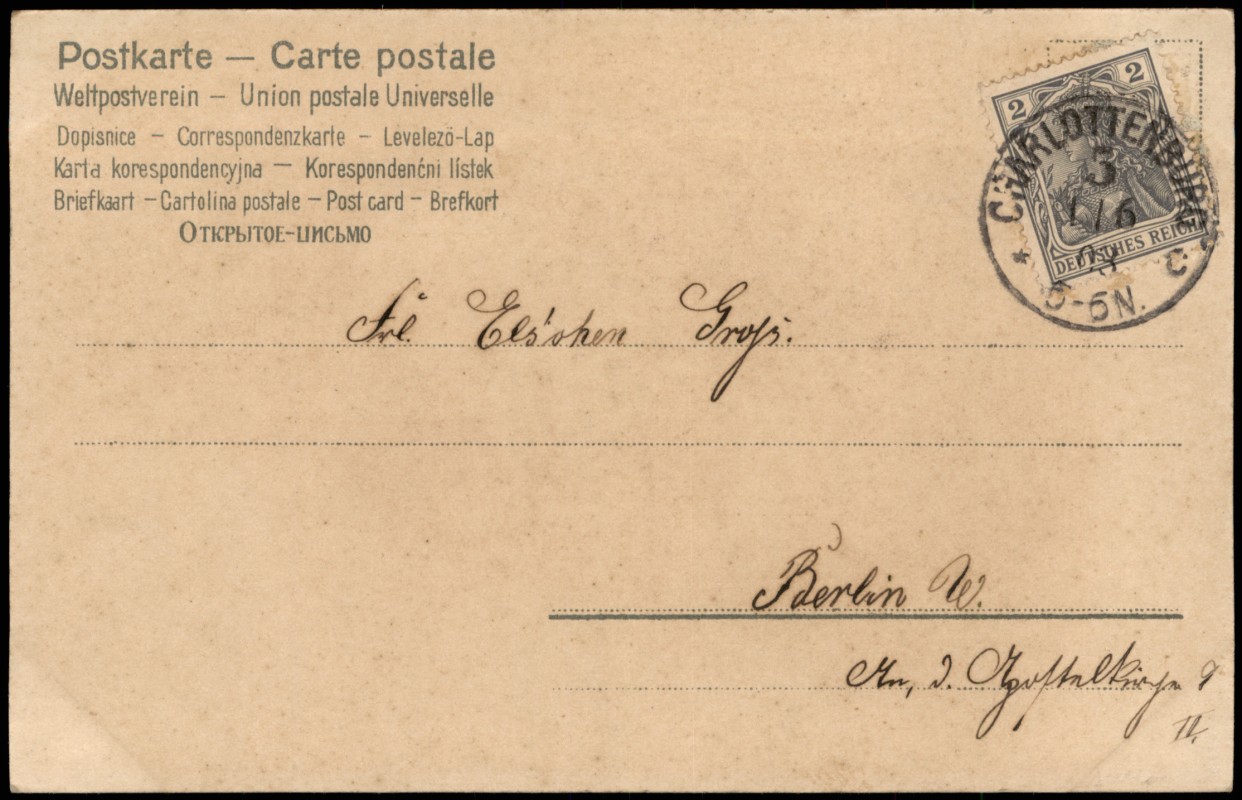 Postkarte — Carte postale
Weltpostverein — Union postale Universelle
Dopisnice — Correspondenzkarte — Levelező-Lap
Karta korespondencyjna — Korespondenční lístek
Briefkaart — Cartolina postale — Post card — Brefkort
Открытое-письмо
2 2
DEUTSCHES REICH
CHARLOTTENBURG
3
1/6
03
5-6N.
* C
Frl. Elschen Groß.
Berlin W.
An d. Apostelkirche 9
II.